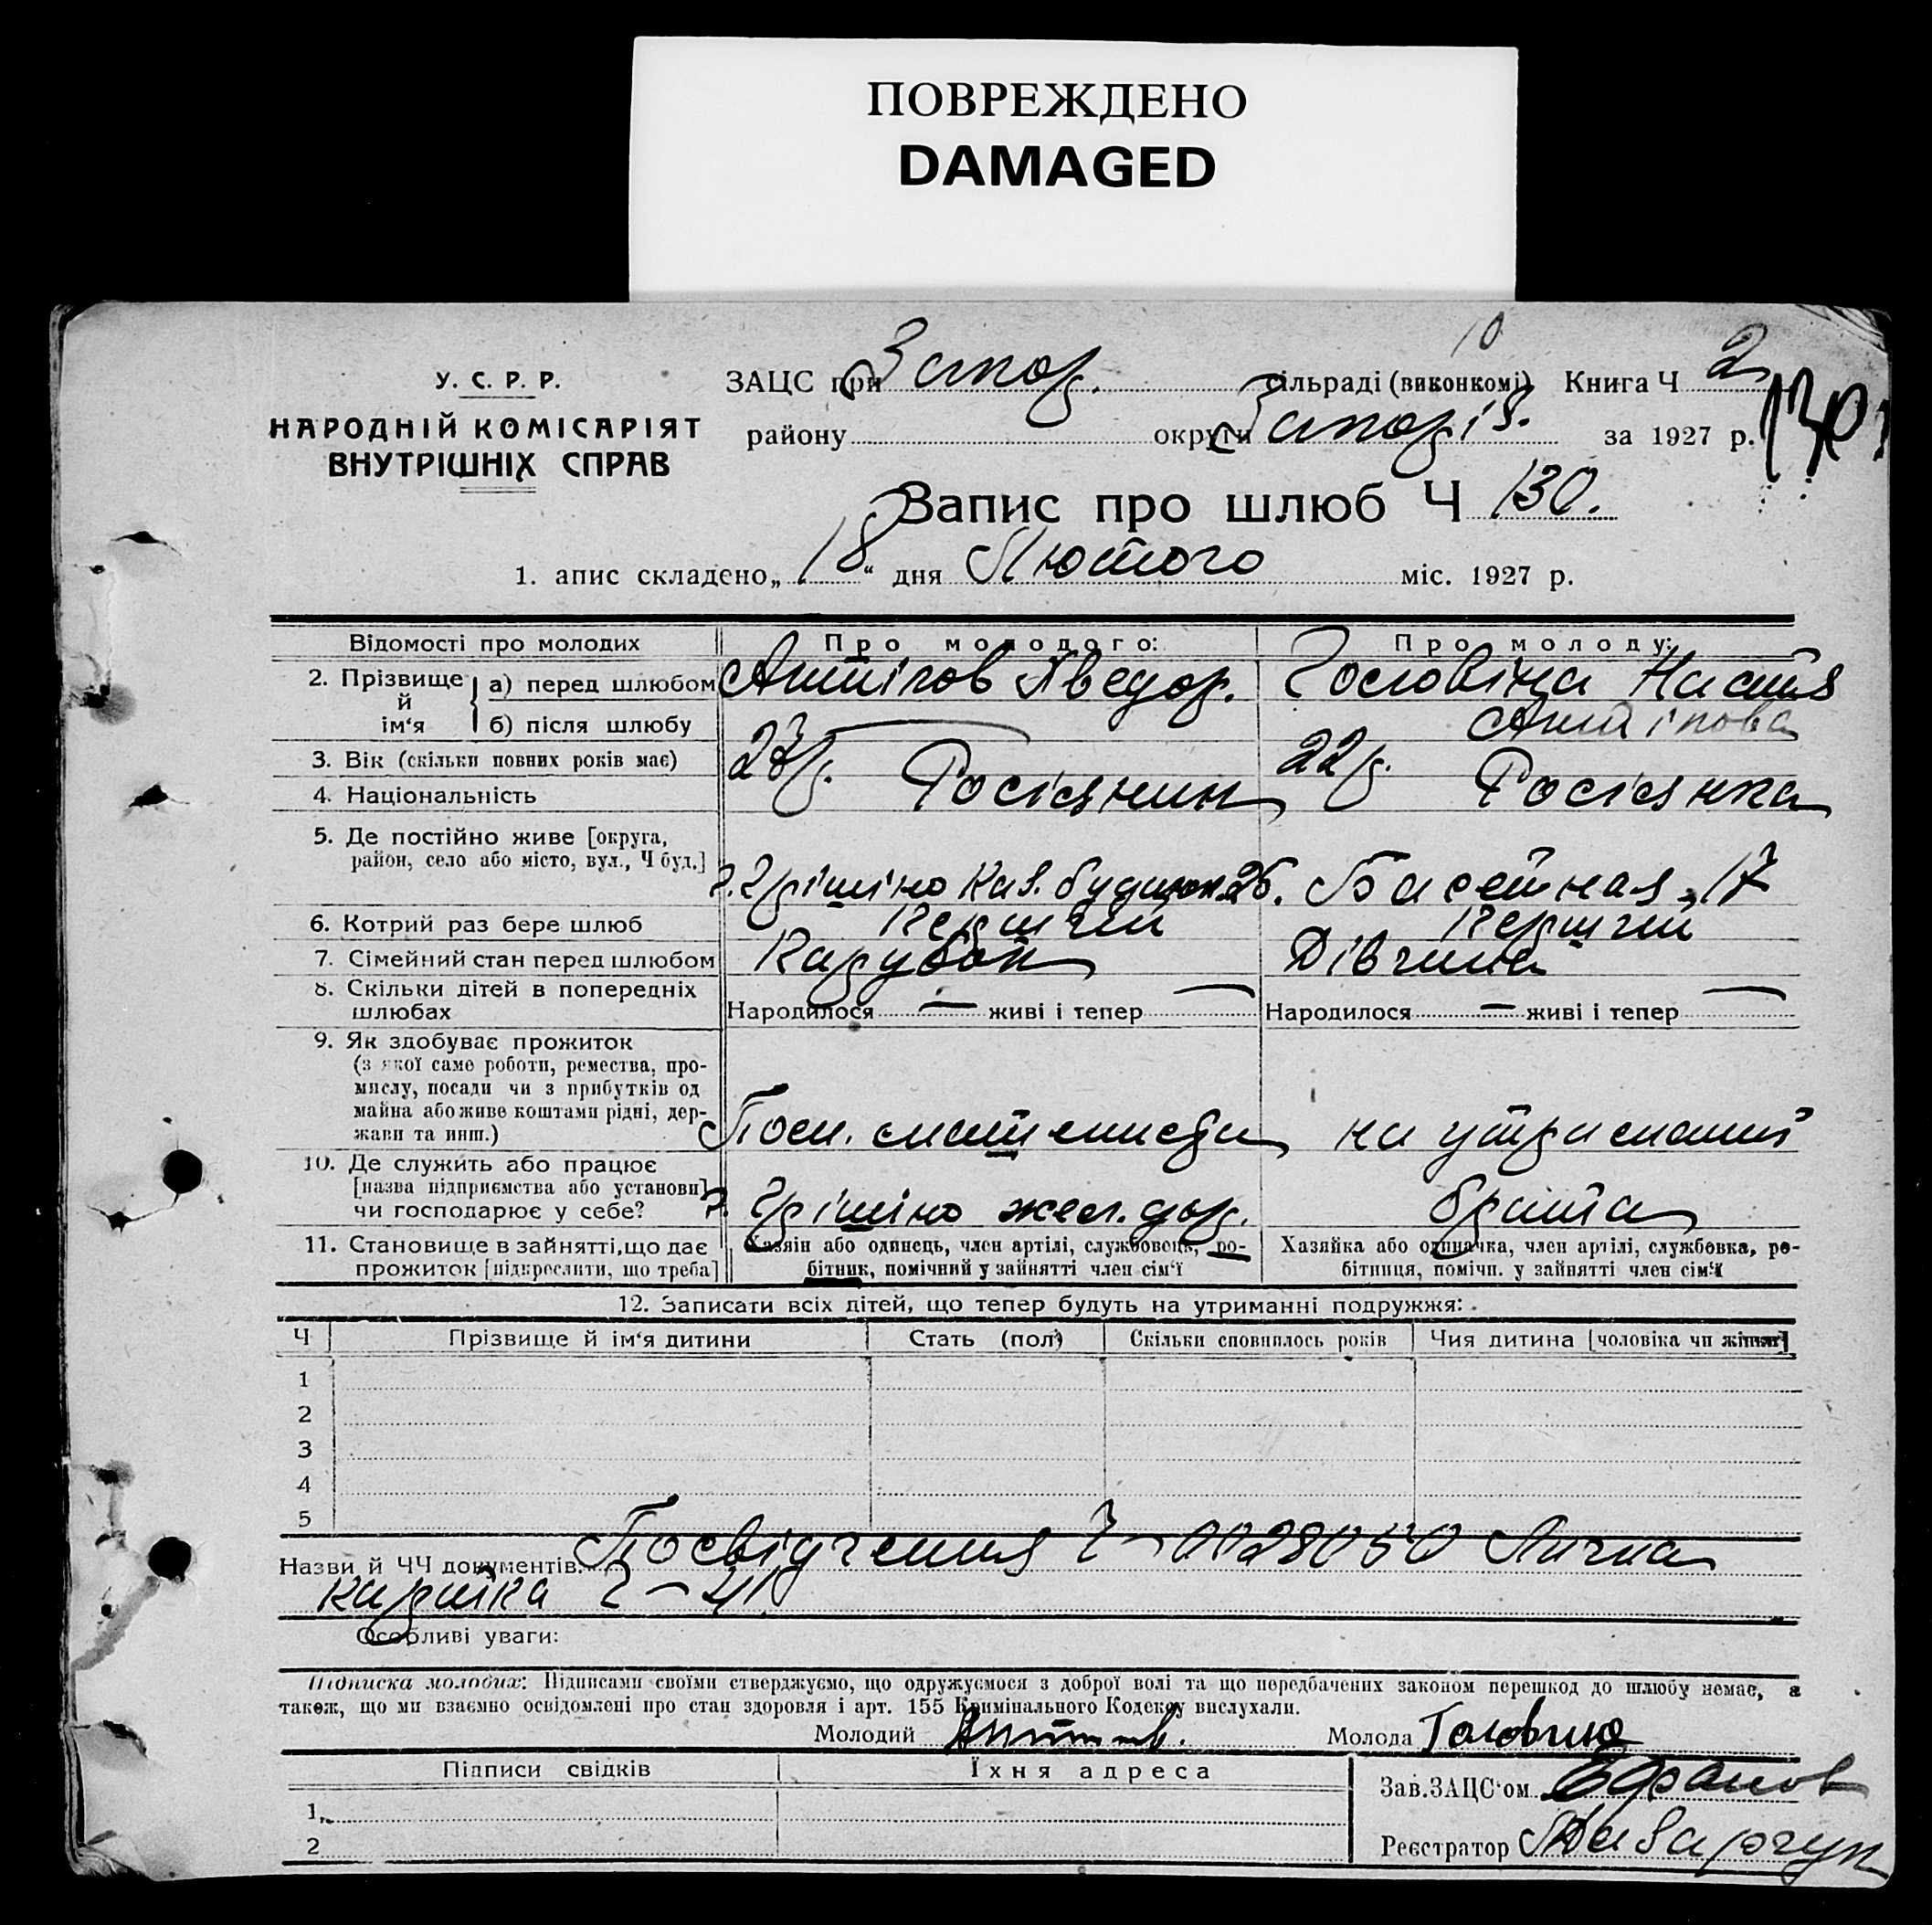 ПОВРЕЖДЕНО
DAMAGED
У. С. Р. Р.
НАРОДНІЙ КОМІСАРІЯТ
ВНУТРІШНІХ СПРАВ
10
ЗАЦС при Запор. сільраді (виконкомі) Книга Ч 2
району округи Запоріз. за 1927 р. 130
Запис про шлюб Ч 130.
1. апис складено „18“ дня Лютого міс. 1927 р.
Відомості про молодих Про молодого: Про молоду:
2. Прізвище й ім‘я
а) перед шлюбом Антіпов Хведор. Головіна Настя
б) після шлюбу — Антіпова
3. Вік (скільки повних років має) 23/р. 22/р.
4. Національність Росіянин Росіянка
5. Де постійно живе [округа,
район, село або місто, вул., Ч буд.] Грішіно Каз. 26. Басейная, 17
6. Котрий раз бере шлюб Перший Перший
7. Сімейний стан перед шлюбом Парубок Дівчина
8. Скільки дітей в попередніх
шлюбах Народилося — живі і тепер — Народилося — живі і тепер —
9. Як здобуває прожиток
(з якої саме роботи, ремества, про-
мислу, посади чи з прибутків од
майна або живе коштами рідні, дер-
жави та инш.) на утриманні
10. Де служить або працює
[назва підприємства або установи]
чи господарює у себе? Грішіно жел. дор. брата
11. Становище в зайнятті, що дає
прожиток [підкреслити, що треба]
Хазяїн або одинець, член артілі, службовець, ро-
бітник, помічний у зайнятті член сім‘ї
Хазяйка або одиначка, член артілі, службовка, ро-
бітниця, помічн. у зайнятті член сім‘ї
12. Записати всіх дітей, що тепер будуть на утриманні подружжя:
Ч Прізвище й ім‘я дитини Стать (пол) Скільки сповнилось років Чия дитина [чоловіка чи жінки]
1
2
3
4
5
Назви й ЧЧ документів: Посвідчення Ч-0028050 Лична
картка Ч-41
Особливі уваги:
Підписка молодих: Підписами своїми стверджуємо, що одружуємося з доброї волі та що передбачених законом перешкод до шлюбу немає, а
також, що ми взаємно освідомлені про стан здоровля і арт. 155 Кримінального Кодексу вислухали.
Молодий Антипов. Молода Головина
Підписи свідків Їхня адреса
Зав. ЗАЦС‘ом
1.
Реєстратор
2